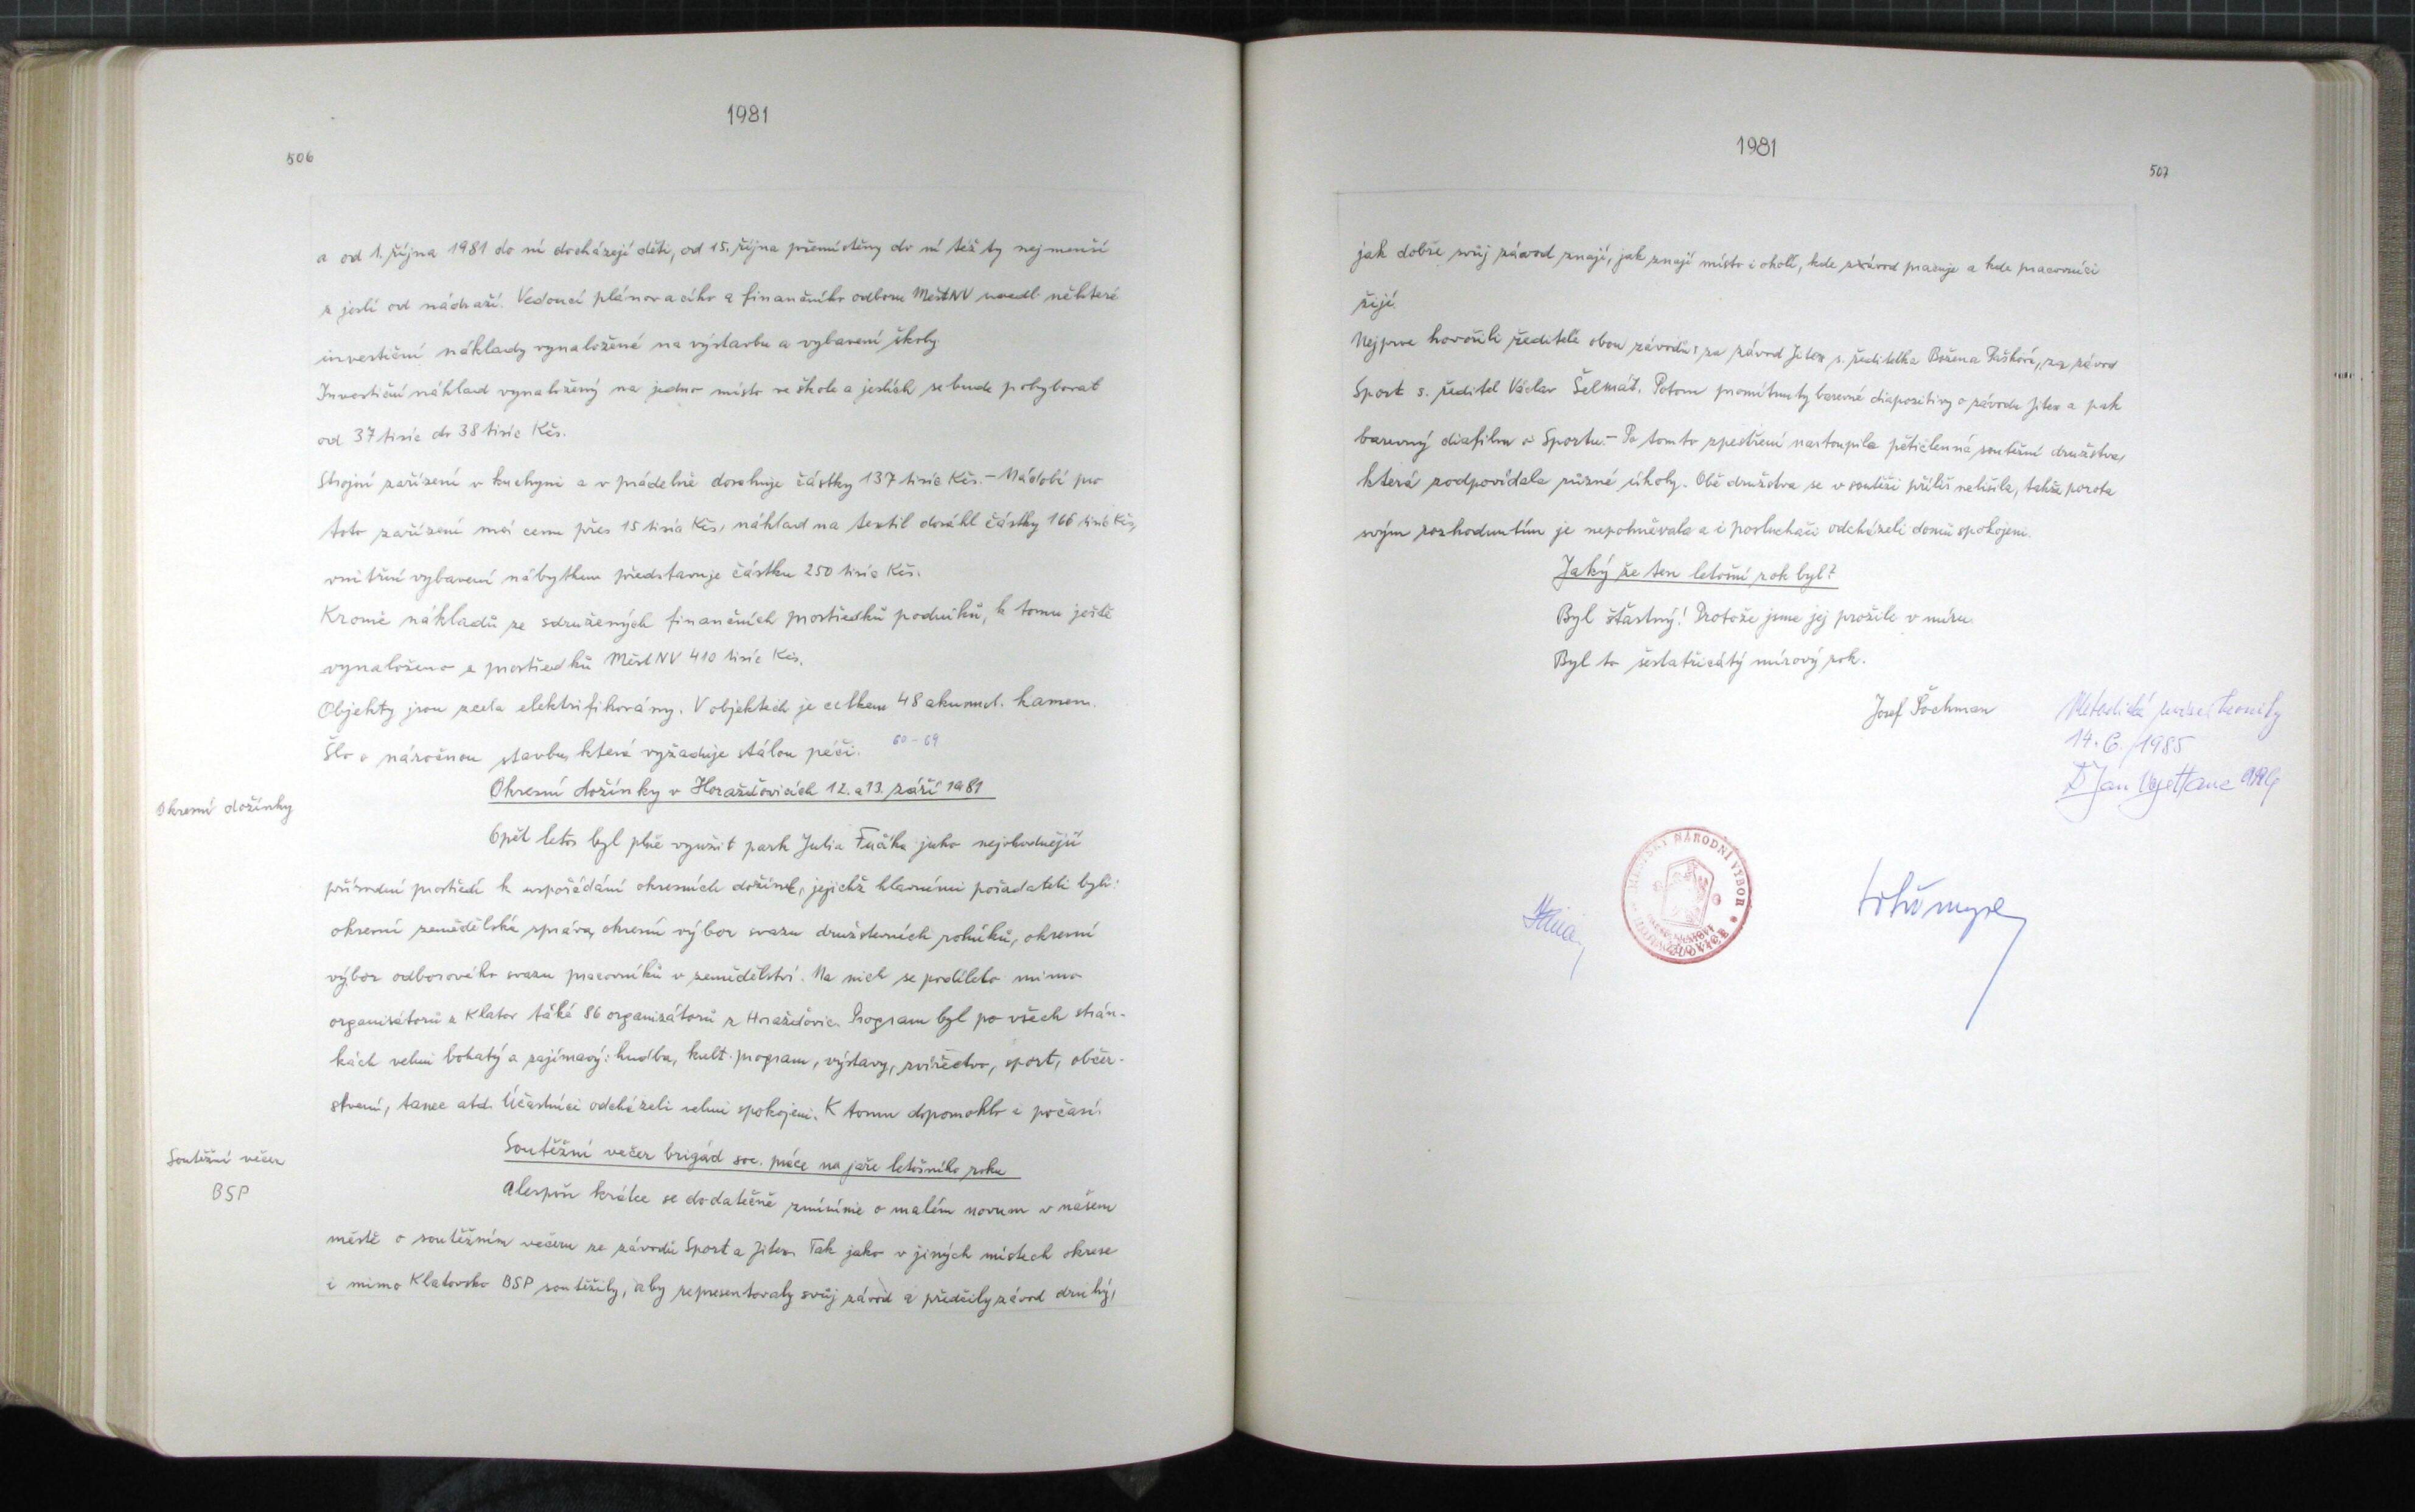 1981
506
a od 1. října 1981 do ní docházejí děti, od 15. října přemístěny do ní též ty nejmenší
z jeslí od nádraží. Vedoucí plánovacího a finančního odboru MěstNV uvedl některé
investiční náklady vynaložené na výstavbu a vybavení školy.
Investiční náklad vynaložený na jedno místo ve škole a jeslích se bude pohybovat
od 37 tisíc do 38 tisíc Kčs.
Strojní zařízení v kuchyni a v prádelně dosahuje částky 137 tisíc Kčs. – Nádobí pro
toto zařízení má cenu přes 15 tisíc Kčs, náklad na textil dosáhl částky 166 tisíc Kčs,
vnitřní vybavení nábytkem představuje částku 250 tisíc Kčs.
Kromě nákladů ze sdružených finančních prostředků podniků, k tomu ještě
vynaloženo z prostředků MěstNV 410 tisíc Kčs.
Objekty jsou zcela elektrifikovány. V objektech je celkem 48 akumul. kamen.
Šlo o náročnou stavbu, která vyžaduje stálou péči. 60 – 69
Okresní dožínky
Okresní dožínky v Horažďovicích 12. a 13. září 1981
Opět letos byl plně využit park Julia Fučíka jako nejvhodnější
přírodní prostředí k uspořádání okresních dožínek, jejichž hlavními pořadateli byli:
okresní zemědělská správa, okresní výbor svazu družstevních rolníků, okresní
výbor odborového svazu pracovníků v zemědělství. Na nich se podílelo mimo
organisátorů z Klatov také 86 organizátorů z Horažďovic. Program byl po všech strán-
kách velmi bohatý a zajímavý: hudba, kult. program, výstavy, zvířectvo, sport, občer-
stvení, tanec atd. Účastníci odcházeli velmi spokojeni. K tomu dopomohlo i počasí.
Soutěžní večer
BSP
Soutěžní večer brigád soc. práce na jaře letošního roku
Alespoň krátce se dodatečně zmíníme o malém novum v našem
městě o soutěžním večeru ze závodů Sport a Jitex. Tak jako v jiných místech okrese
i mimo Klatovsko BSP soutěžily, aby representovaly svůj závod a předčily závod druhý,
1981
507
jak dobře svůj závod znají, jak znají místo i okolí, kde závod pracuje a kde pracovníci
žijí.
Nejprve hovořili ředitelé obou závodů: za závod Jitex s. ředitelka Božena Pašková, za závod
Sport s. ředitel Václav Šelmát. Potom promítnuty barevné diapozitivy o závodu Jitex a pak
barevný diafilm o Sportu. – Po tomto zpestření nastoupila pětičlenná soutěžní družstva,
která zodpovídala různé úkoly. Obě družstva se v soutěži příliš nelišila, takže porota
svým rozhodnutím je nepohněvala a i posluchači odcházeli domů spokojeni.
Jaký že ten letošní rok byl?
Byl šťastný! Protože jsme jej prožili v míru.
Byl to šestatřicátý mírový rok.
Josef Šochman
Metodická revize kroniky
14. 6. 1985
MĚSTSKÝ NÁRODNÍ VÝBOR
HORAŽĎOVICE